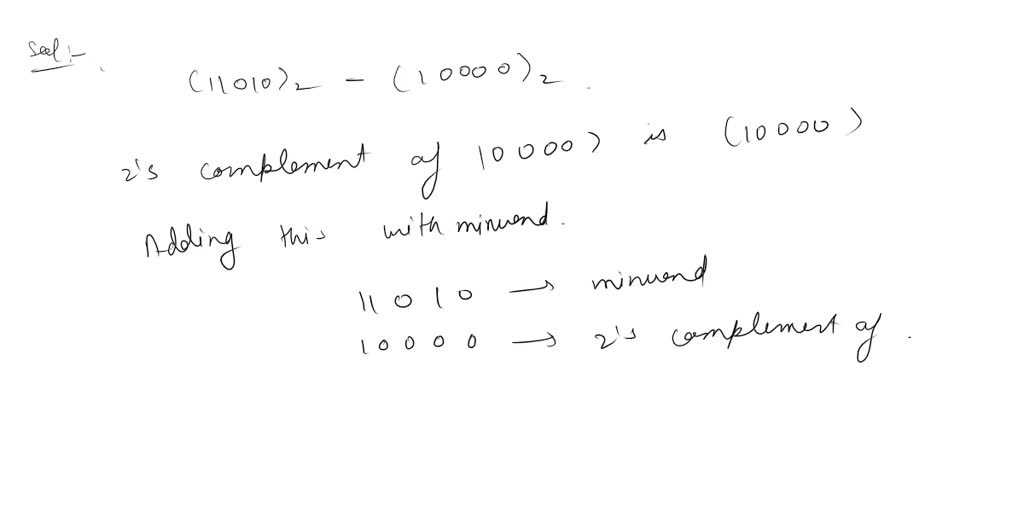 Sol :-
(11010)₂ - (10000)₂ .
2's complement of 10000) is (10000)
Adding this with minuend.
11010 → minuend
10000 → 2's complement of .